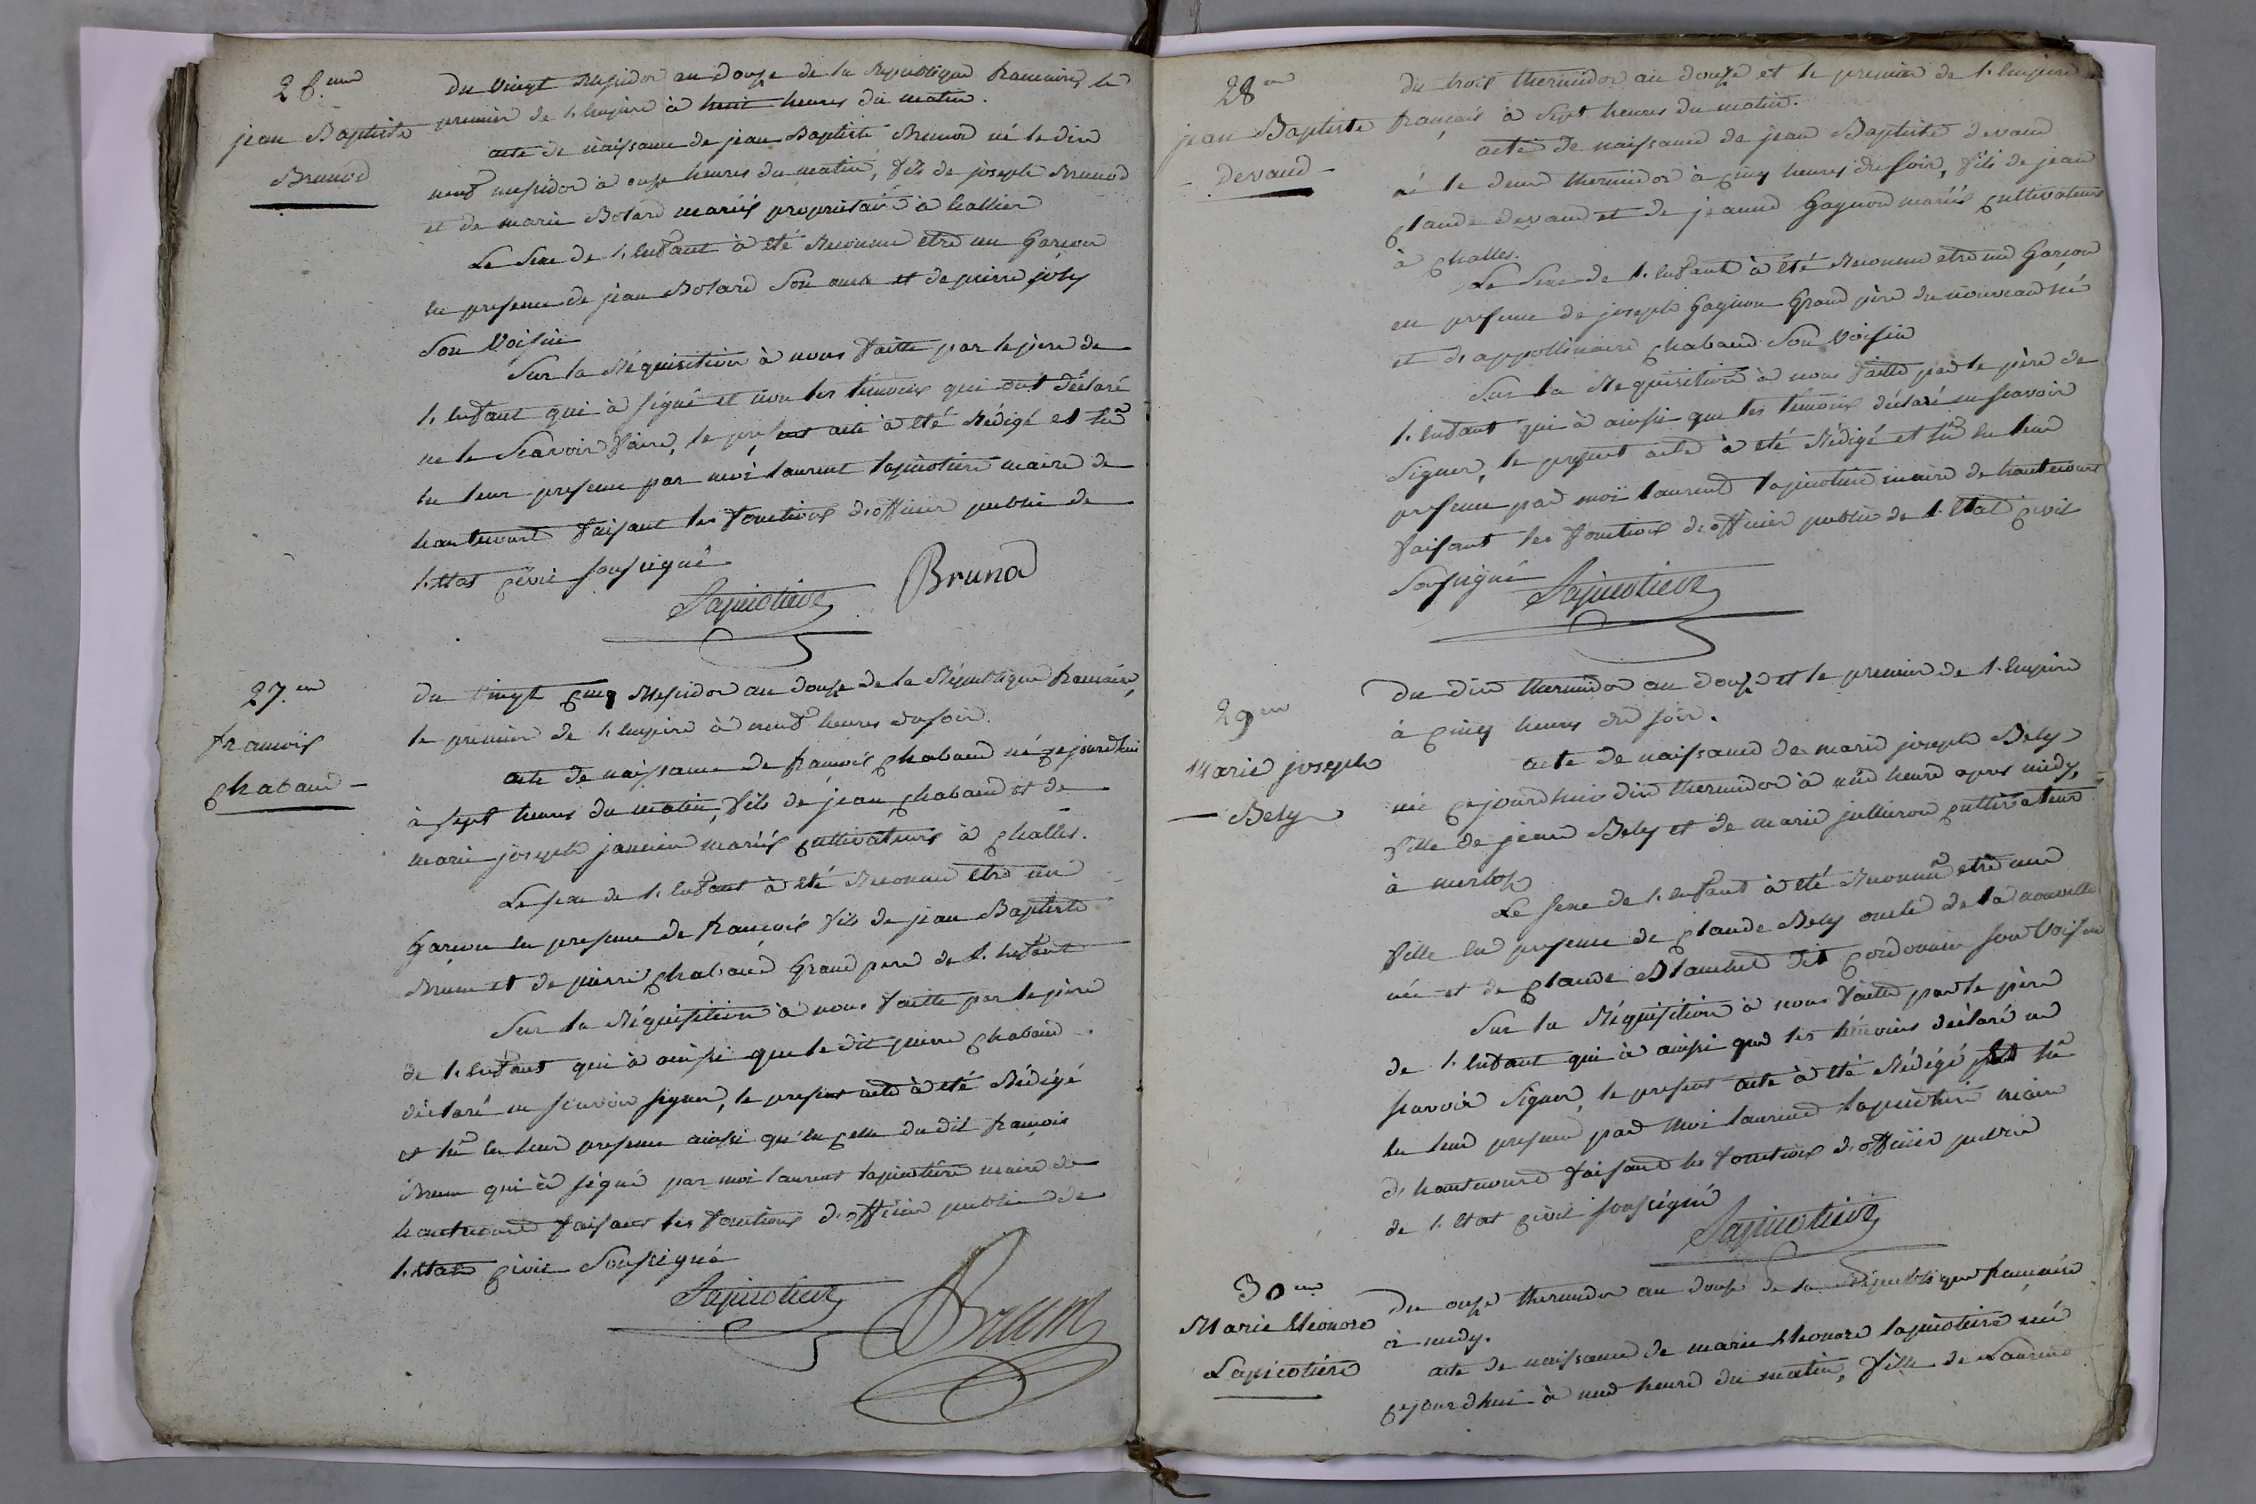 26.eme
jean Baptiste
Brunod
du vingt Messidor an douze de la Republique francaise, le
premier de l'Empire à huit heures du matin.
acte de naissance de jean Baptiste Brunod né le dix
neuf messidor à onze heures du matin, fils de joseph Brunod
et de marie Botard mariés propriétaire à hallier
Le sexe de l'enfant à été Reconnu etre un Garcon
en presence de jean Botard son oncle et de pierre joly
son voisin
Sur la Réquisition à nous faitte par le pere de
l'enfant qui à signé et non les témoins qui ont déclaré
ne le scavoir faire, le present acte à été Rédigé et lû
en leur presence par moi laurent lapicotiere maire de
hautecourt faisant les fonctions d'officier public de
l'etat civil soussigné
Lapicotiere Brunod
27.em
francois
chabaud
du vingt cinq Messidor an douze de la République francaise,
le premier de l'Empire à neuf heures du soir.
acte de naissance de francois chabaud né cejourdhui
à sept heures du matin, fils de jean chabaud et de
marie joseph janvier mariés cultivateurs à challes.
Le sexe de l'enfant à été Reconnu etre un
Garcon en presence de francois fils de jean Baptiste
Brun et de pierre chabaud Grand pere de l'enfant
Sur la Réquisition à nous faitte par le pere
de l'enfant qui à ainsi que le dit pierre chabaud
déclaré ne scavoir signer, le present acte à été Rédigé
et lû en leur presence ainsi qu'en celle du dit françois
Brun qui à signé par moi laurent lapicotière maire de
hautecourt faisant les fonctions d'officier public de
l'etat civil soussigné
Lapicotiere Brun
28em
jean Baptiste
devaud
du trois thermidor an douze et le premier de l'Empire
français à sept heures du matin.
acte de naissance de jean Baptiste devaud
né le deux thermidor à cinq heures du soir, fils de jean
claude devaud et de jeanne Gagnon mariés cultivateurs
à challes.
Le sexe de l'enfant à été Reconnu etre un Garçon
en presence de joseph Gagnon Grand père du nouveau né
et d'appollinaire chabaud son voisin
Sur la Requisition à nous faitte par le père de
l'enfant qui à ainsi que les témoins déclaré ne scavoir
signer, le present acte à été Rédigé et lû en leur
presence par moi laurent lapicotiere maire de hautecourt
faisant les fonctions d'officier public de l'Etat civil
soussigné Lapicotiere
29em
Marie joseph
Bely
du dix thermidor an douze et le premier de l'Empire
à cinq heures du soir.
acte de naissance de marie joseph Bely
née cejourdhui dix thermidor à une heure apres midy,
fille de jean Bely et de marie jullieron cultivateur
à merloz
Le sexe de l'enfant à été Reconnu etre une
fille en presence de claude Bely oncle de la nouvelle
née et de claude Blanchet dit cordonnier son voisin
Sur la Réquisition à nous faitte par le père
de l'enfant qui à ainsi que les témoins déclaré ne
scavoir signer, le present acte à été Rédigé et lû
en leur presence par moi laurent lapicotiere maire
d'hautecourt faisant les fonctions d'officier public
de l'etat civil soussigné
Lapicotiere
30em
Marie Eléonore
Lapicotière
du onze thermidor an douze de la République française
à midy.
acte de naissance de marie Eleonore lapicotiere née
cejourdhui à une heure du matin, fille de Laurent